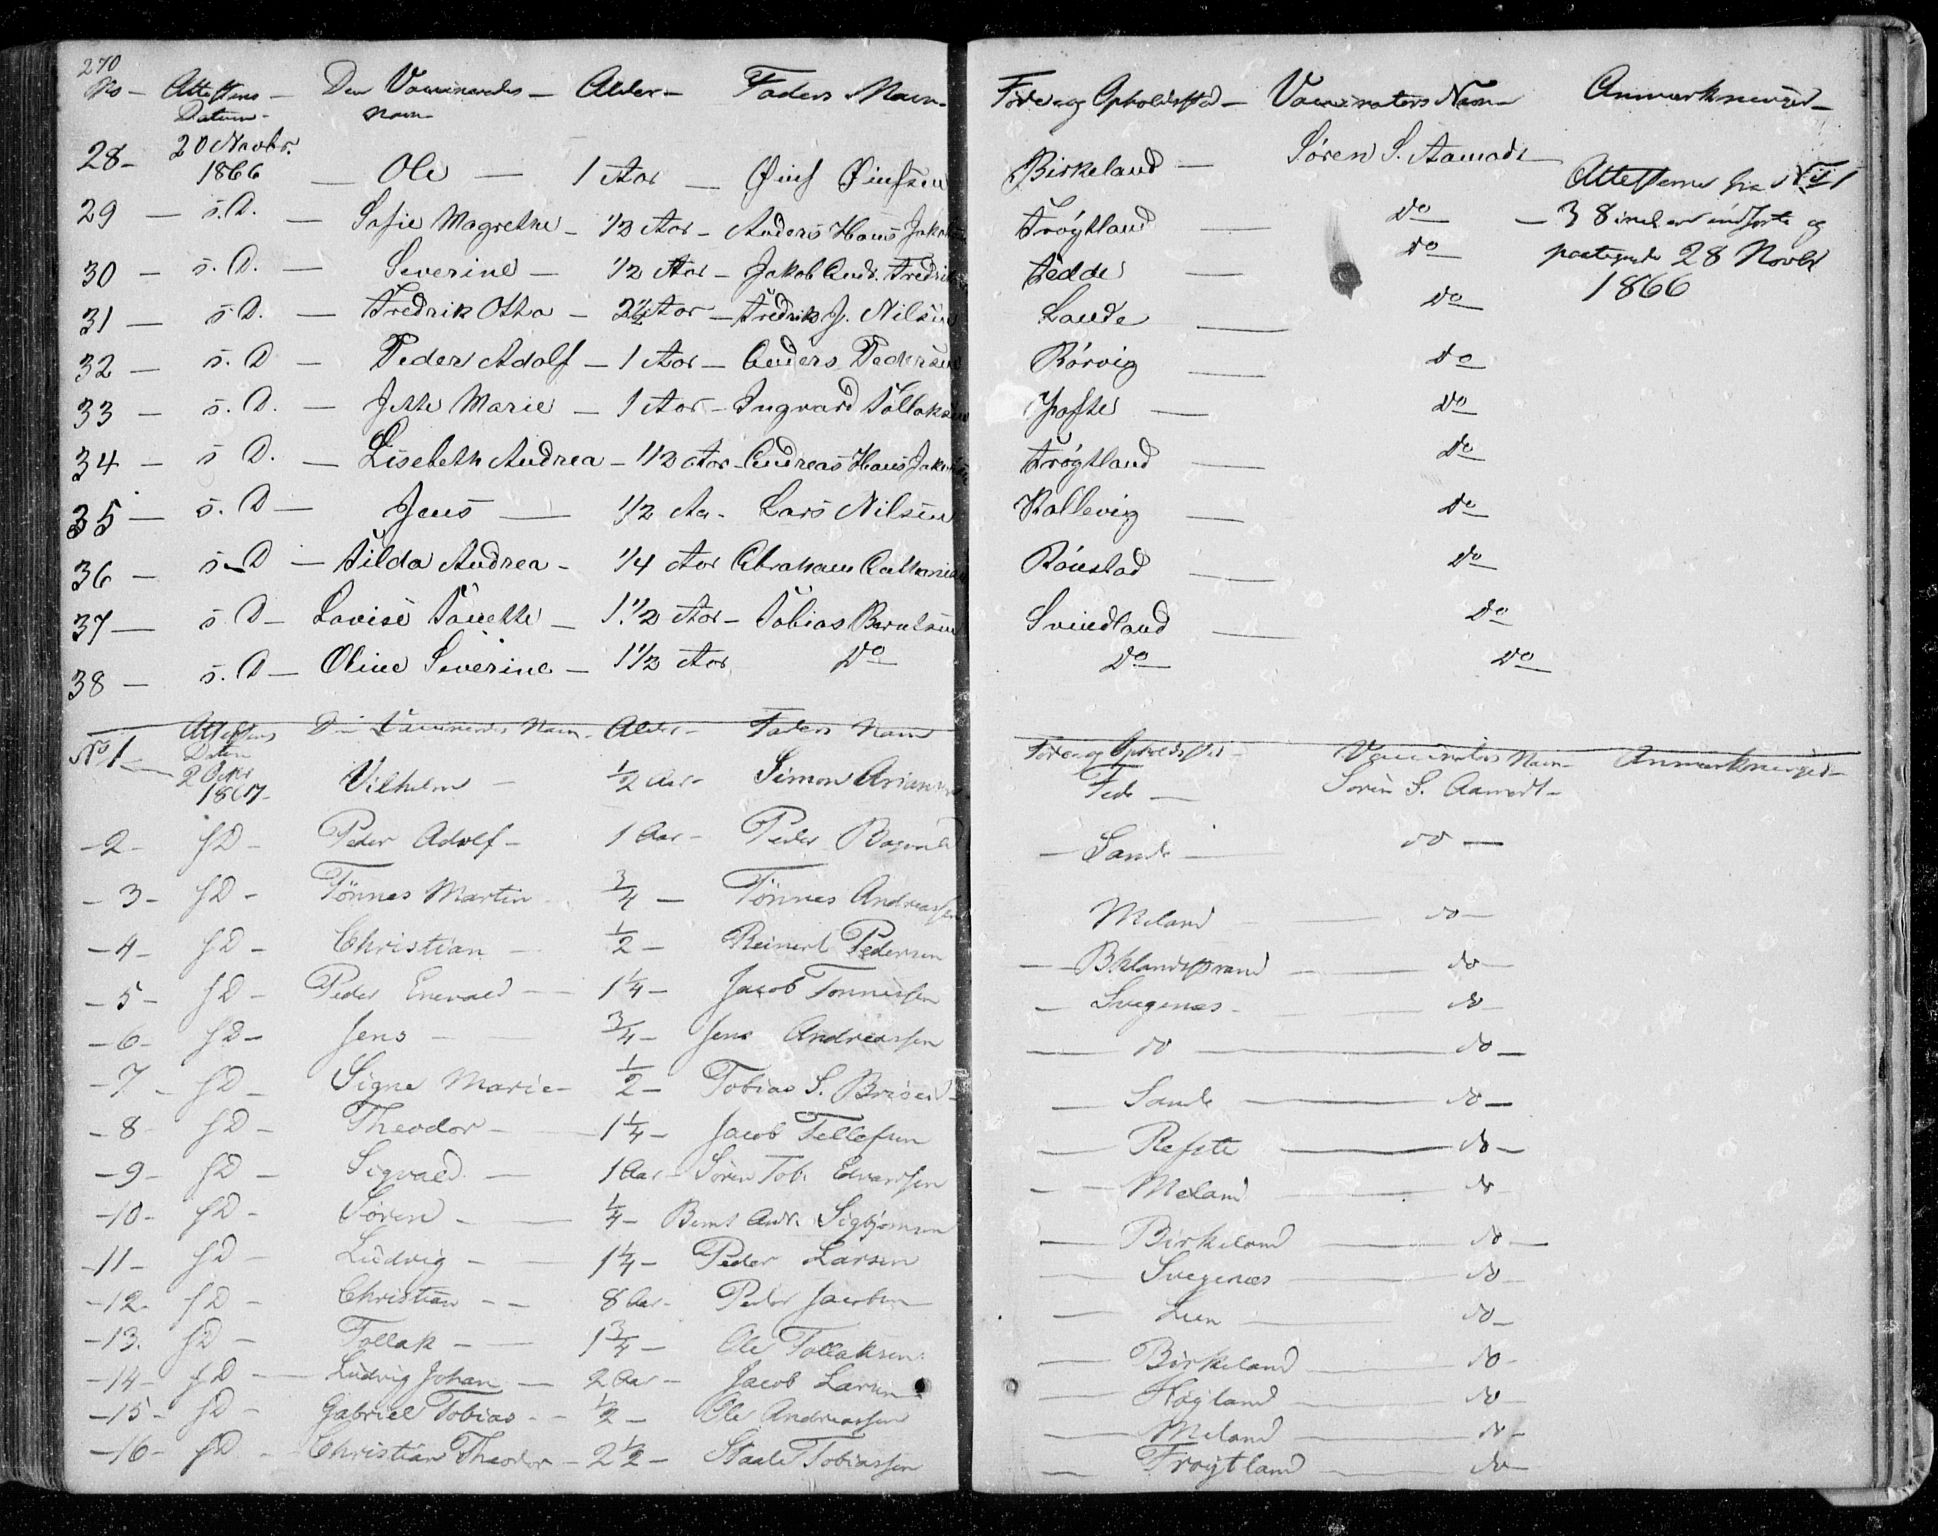 270
No — Attestens — Den Vaccineredes — Alder — Faders Navn — Føde og Opholdssted — Vaccinators Navn — Anmærkninger —
Datum — Navn
28 — 20 Novbr. 1866 — Ole — 1 Aar — Birkeland — Søren S. Aamodt — Attesterne fra No 1
29 — s. D. — Sofie Magrethe — 1/2 Aar — Anders Hans Jakobsen Frøytland — do — 38 incl. er indførte og
30 — s. D. — Severine — 1/2 Aar — Jakob Andr. Fredrik Fedde — do paategnede 28 Novbr
31 — s. D. — Fredrik Otto — 2 1/2 Aar — Fredrik J. Nilsen Lande — do 1866
32 — s. D — Peder Adolf — 1 Aar — Anders Pedersen Rørvig — do
33 — s. D. — Jette Marie — 1 Aar — Ingvard Tollaksen — do
34 — s D. — Lisebeth Andrea — 1/2 Aar — Andreas Hans Jakobsen Frøytland — do
35 — s. D — Jens — 1/2 Aa — Lars Nilsen Kallevig — do
36 — s. D — Tilda Andrea — 1/4 Aar Abraham — do
37 — s D — Lovise Tonette — 1 1/2 Aar — Tobias Berntsen Svindland — do
38 — s. D — Oline Severine — 1 1/2 Aar do do do
Attestens Datum D— Vaccineredes Navn — Alder — Faders Navn Føde og Opholdssted — Vaccinators Navn — Anmærkninger —
No 1 — 2 1867 — Vilhelm — 1/2 Aar — Simon Fede — Søren S. Aamodt —
— 2 — s D — Peder Adolf — 1 Aar — Peder — Sande — do —
— 3 — s D — Tønnes Martin 3/4 — Tønnes Andreassen Meland — do —
— 4 — s D — Christian — 1/2 — Reinert Pedersen — do —
— 5 — s D — Peder Enevald — 1 1/4 — Jacob Tønnessen — Svegenæs — do —
— 6 — s D — Jens — 3/4 — Jens Andreassen — do — do —
— 7 — s D — Signe Marie — 1/2 — Tobias S. — Sande — do —
— 8 — s D — Theodor — 1 1/4 — Jacob Tellefsen — Refste — do —
— 9 — s D — Sigvald — 1 Aar — Søren Tob. Edvardsen — Meland — do
— 10 — s D — Søren — 1/4 — Bernt Andr. Sigbjørnsen — Birkeland — do —
— 11 — s D — Ludvig — 1 1/4 — Peder Larsen — Svegenæs — do —
— 12 — s D — Christian — 8 Aar — Peder Jacobsen — Lien — do —
— 13. s D — Tollak — 1 3/4 — Ole Tollaksen — Birkeland — do —
— 14 — s D — Ludvig Johan — 2 Aar — Jacob Larsen — Høyland — do —
— 15 — s D — Gabriel Tobias — 1/2 — Ole Andreassen — Meland — do —
— 16 — s D — Christian Theodor — 2 1/2 — Staale Tobiassen — Frøytland — do —